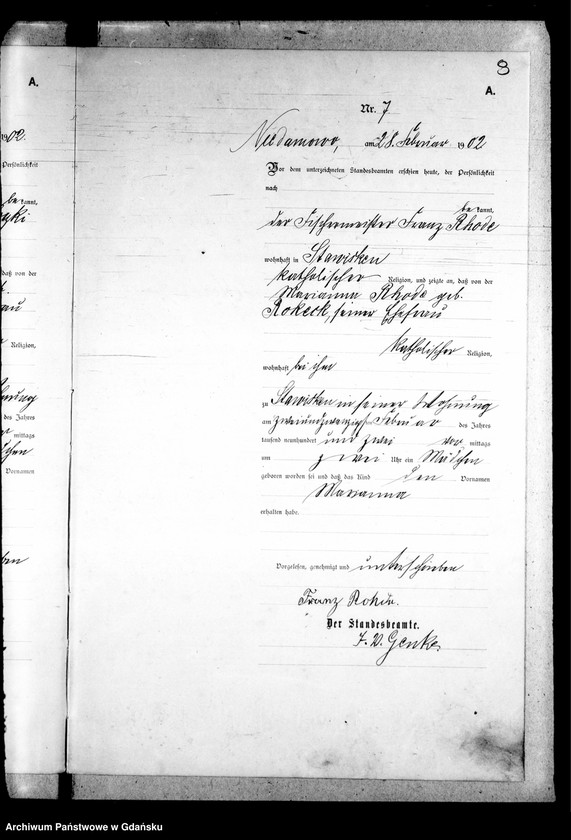 8
A.
A.
Nr. 7
Niedamowo, am 28. Februar 1902
1902.
Vor dem unterzeichneten Standesbeamten erschien heute, der Persönlichkeit
Persönlichkeit
nach
be kannt,
be kannt,
der Fischermeister Franz Rhode
wohnhaft in Stawisken
katholischer Religion, und zeigte an, daß von der
daß von der
Marianna Rhode geb.
Rokeck, seiner Ehefrau
katholischer Religion,
Religion,
wohnhaft bei ihm
zu Stawisken in seiner Wohnung
am zweiundzwanzigsten Februar des Jahres
des Jahres
tausend neunhundert und zwei vor mittags
mittags
um zwei Uhr ein Mädchen
geboren worden sei und daß das Kind den Vornamen
Vornamen
Marianna
erhalten habe.
Vorgelesen, genehmigt und unterschrieben
Franz Rohde.
Der Standesbeamte.
I. V. Genke.
Archiwum Państwowe w Gdańsku